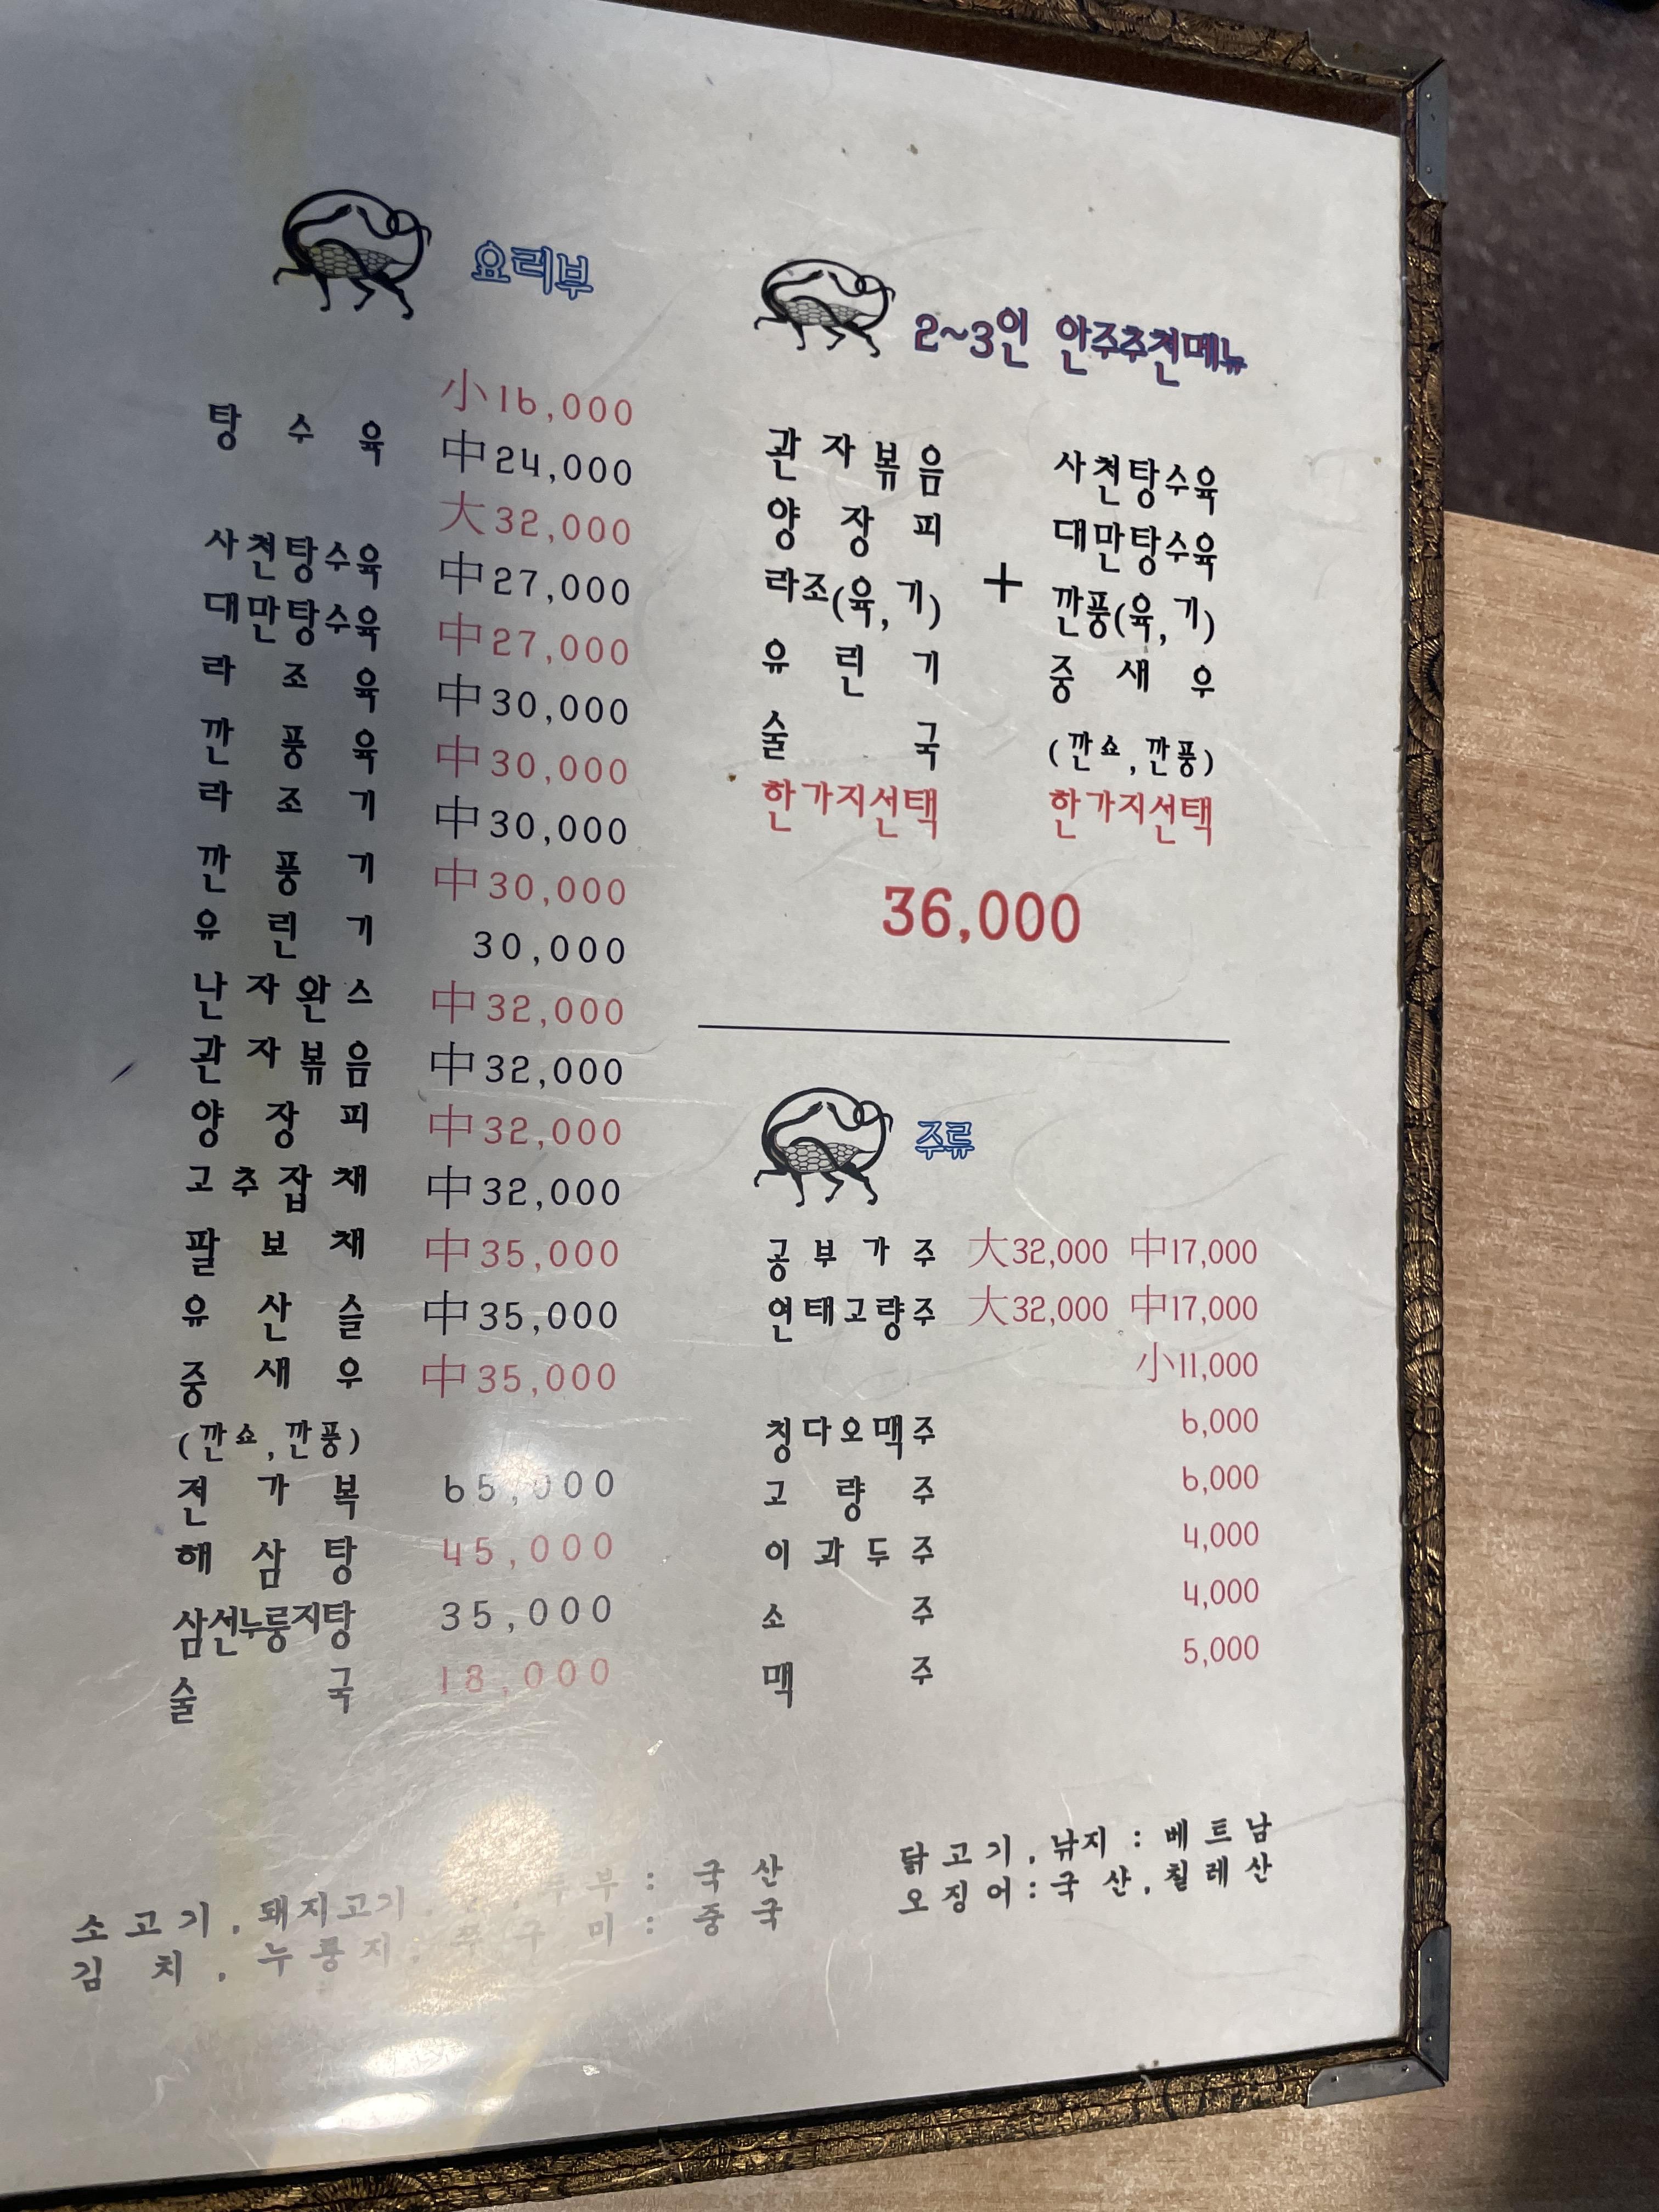 요리부
탕수육 小16,000
中24,000
大32,000
사천탕수육 中27,000
대만탕수육 中27,000
라조육 中30,000
깐풍육 中30,000
라조기 中30,000
깐풍기 中30,000
유린기 30,000
난자완스 中32,000
관자볶음 中32,000
양장피 中32,000
고추잡채 中32,000
팔보채 中35,000
유산슬 中35,000
중새우 中35,000
(깐쇼,깐풍)
전가복 65,000
해삼탕 45,000
삼선누룽지탕 35,000
술국 18,000
2~3인 안주추천메뉴
관자볶음 사천탕수육
양장피 대만탕수육
라조(육,기) + 깐풍(육,기)
유린기 중새우
술국 (깐쇼,깐풍)
한가지선택 한가지선택
36,000
주류
공부가주 大32,000 中17,000
연태고량주 大32,000 中17,000
小11,000
칭다오맥주 6,000
고량주 6,000
이과두주 4,000
소주 4,000
맥주 5,000
소고기, 돼지고기, 두부 : 국산
김치, 누룽지, 쭈구미 : 중국
닭고기, 낚지 : 베트남
오징어 : 국산, 칠레산